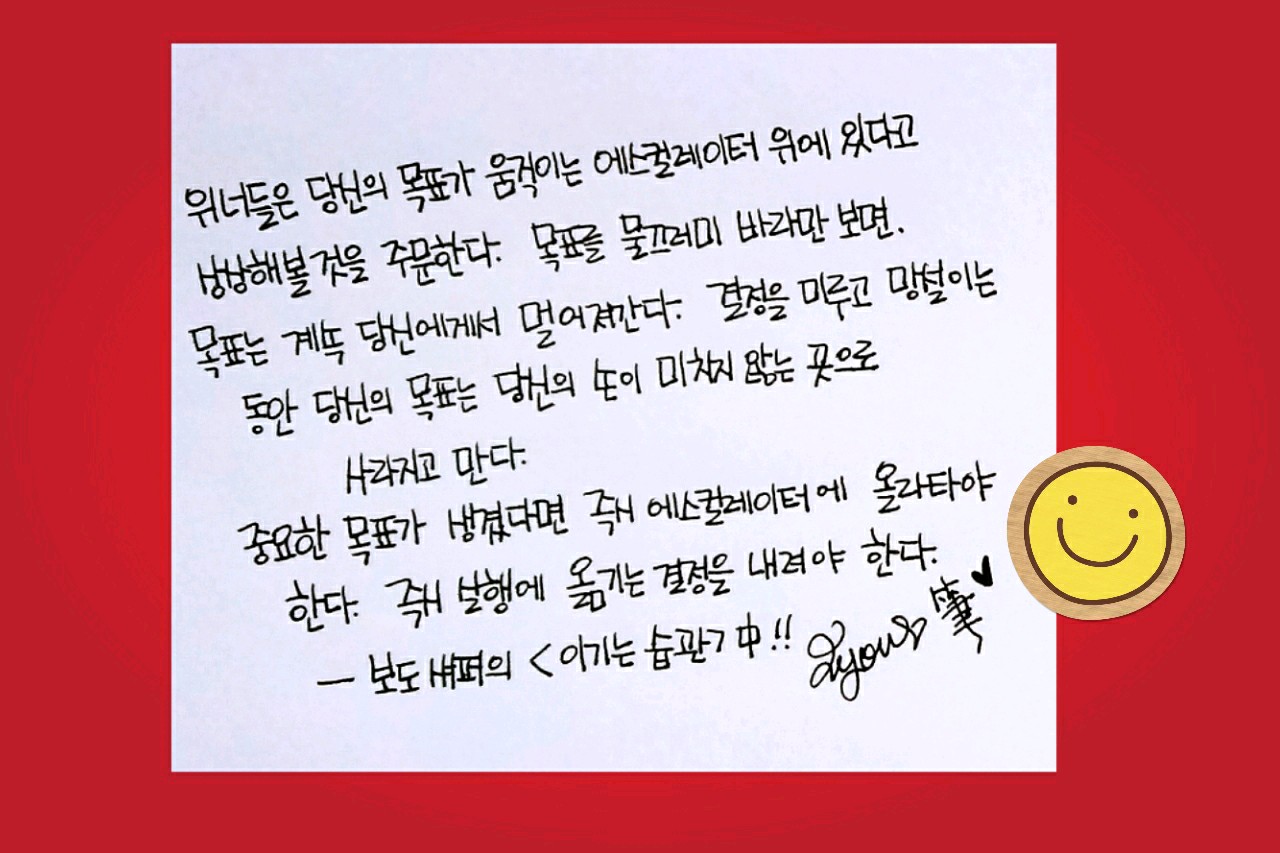 위너들은 당신의 목표가 움직이는 에스컬레이터 위에 있다고
상상해볼 것을 주문한다. 목표를 물끄러미 바라만 보면.
목표는 계속 당신에게서 멀어져간다. 결정을 미루고 망설이는
동안 당신의 목표는 당신의 손이 미치지 않는 곳으로
사라지고 만다.
중요한 목표가 생겼다면 즉시 에스컬레이터에 올라타야
한다. 즉시 실행에 옮기는 결정을 내려야 한다.
— 보도 섀퍼의 <이기는 습관> 中!!
2you♡ 筆♥